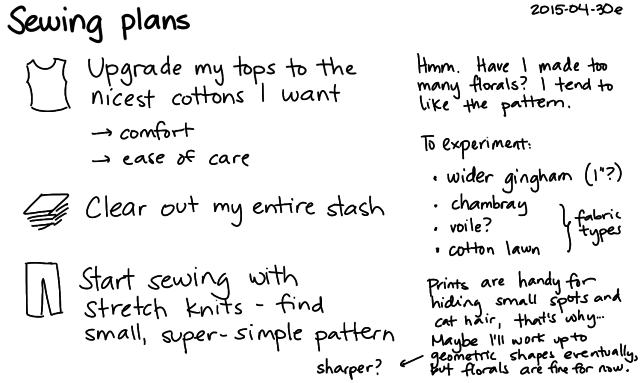 Sewing plans
2015-04-30e
Upgrade my tops to the
nicest cottons I want
→ comfort
→ ease of care
Clear out my entire stash
Start sewing with
stretch knits - find
small, super-simple pattern
Hmm. Have I made too
many florals? I tend to
like the pattern.
To experiment:
• wider gingham (1"?)
• chambray
• voile?
• cotton lawn
fabric
types
Prints are handy for
hiding small spots and
cat hair, that's why...
Maybe I'll work up to
geometric shapes eventually,
but florals are fine for now.
sharper?